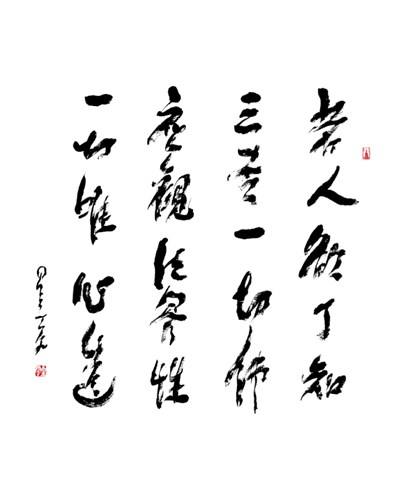 若人欲了知
三世一切佛
應觀法界性
一切惟心造